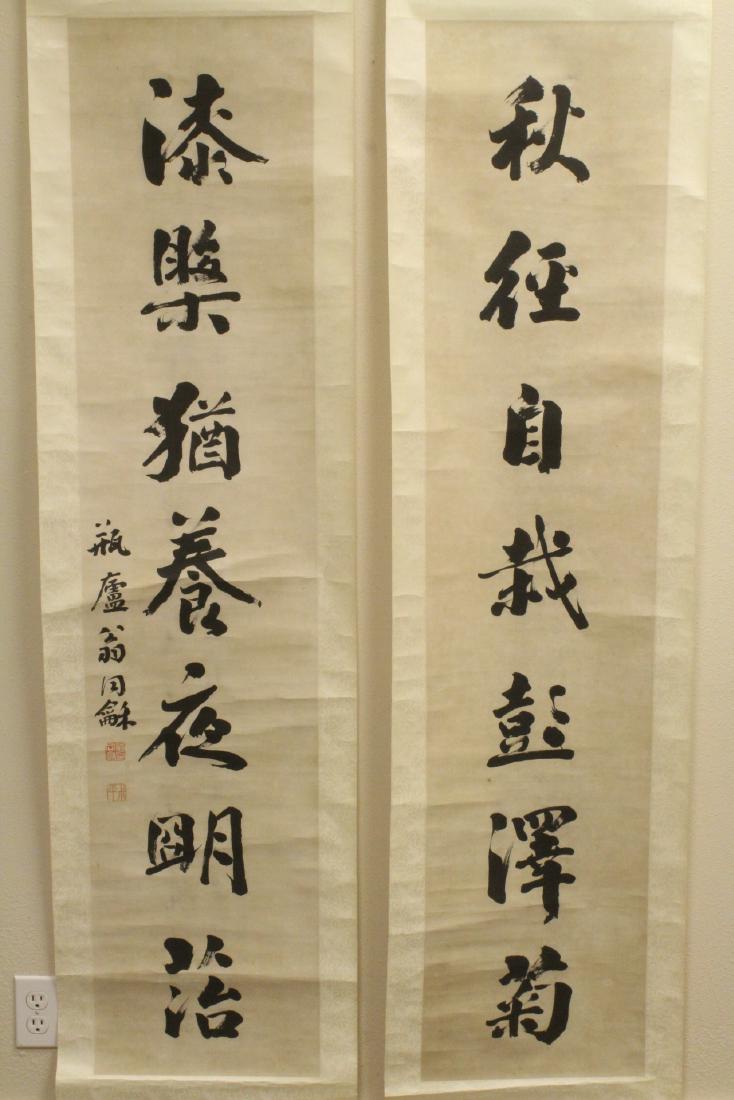 秋徑自栽彭澤菊
漆槃猶養夜朙菭
瓶廬翁同龢